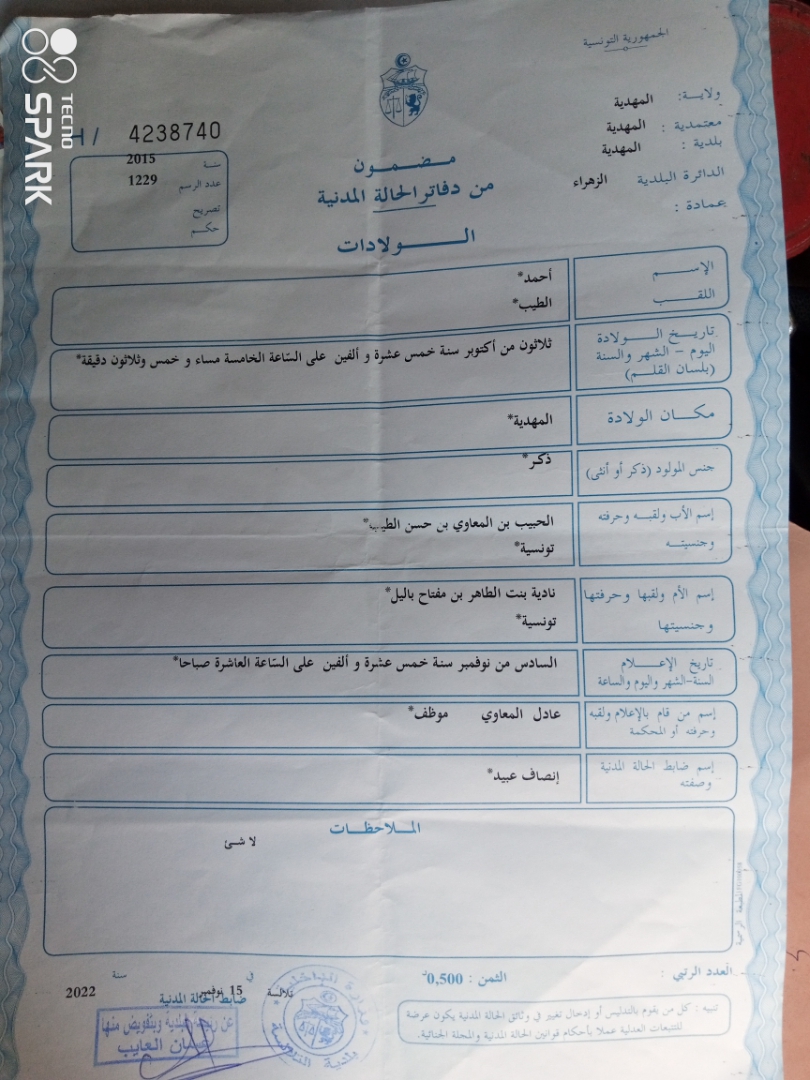 الجمهورية التونسية
ولاية: المهدية
معتمدية : المهدية
بلدية : المهدية
الدائرة البلدية الزهراء
عمادة :
H / 4238740
سنة 2015
عدد الرسم 1229
تصريح
حكم
مـضـمـون
من دفاتر الحالة المدنية
الـــولادات
الإســـم أحمد*
اللقـب الطيب*
تاريـخ الـــولادة
اليوم - الشهر والسنة
(بلسان القلـم)
ثلاثون من أكتوبر سنة خمس عشرة و ألفين على السّاعة الخامسة مساء و خمس وثلاثون دقيقة*
مكـــان الولادة المهدية*
جنس المولود (ذكر أو أنثى) ذكر*
إسم الأب ولقبـه وحرفته
وجنسيتـــه
الحبيب بن المعاوي بن حسن الطيب*
تونسية*
إسم الأم ولقبها وحرفتها
وجنسيتها
نادية بنت الطاهر بن مفتاح باليل*
تونسية*
تاريخ الإعـــلام
السنة-الشهر واليوم والساعة
السادس من نوفمبر سنة خمس عشرة و ألفين على السّاعة العاشرة صباحا*
إسم من قام بالإعلام ولقبه
وحرفته أو المحكمة
عادل المعاوي موظف*
إسم ضابط الحالة المدنية
وصفته
إنصاف عبيد*
الملاحظـات
لا شئ
العدد الرتبي :
الثمن : 0,500د
في 15 نوفمبر سنة 2022
ضابط الحالة المدنية
تنبيه : كل من يقوم بالتدليس أو إدخال تغيير في وثائق الحالة المدنية يكون عرضة
للتتبعات العدلية عملا بأحكام قوانين الحالة المدنية والمجلة الجنائية.
المطبعة الرسمية
TECNO
SPARK